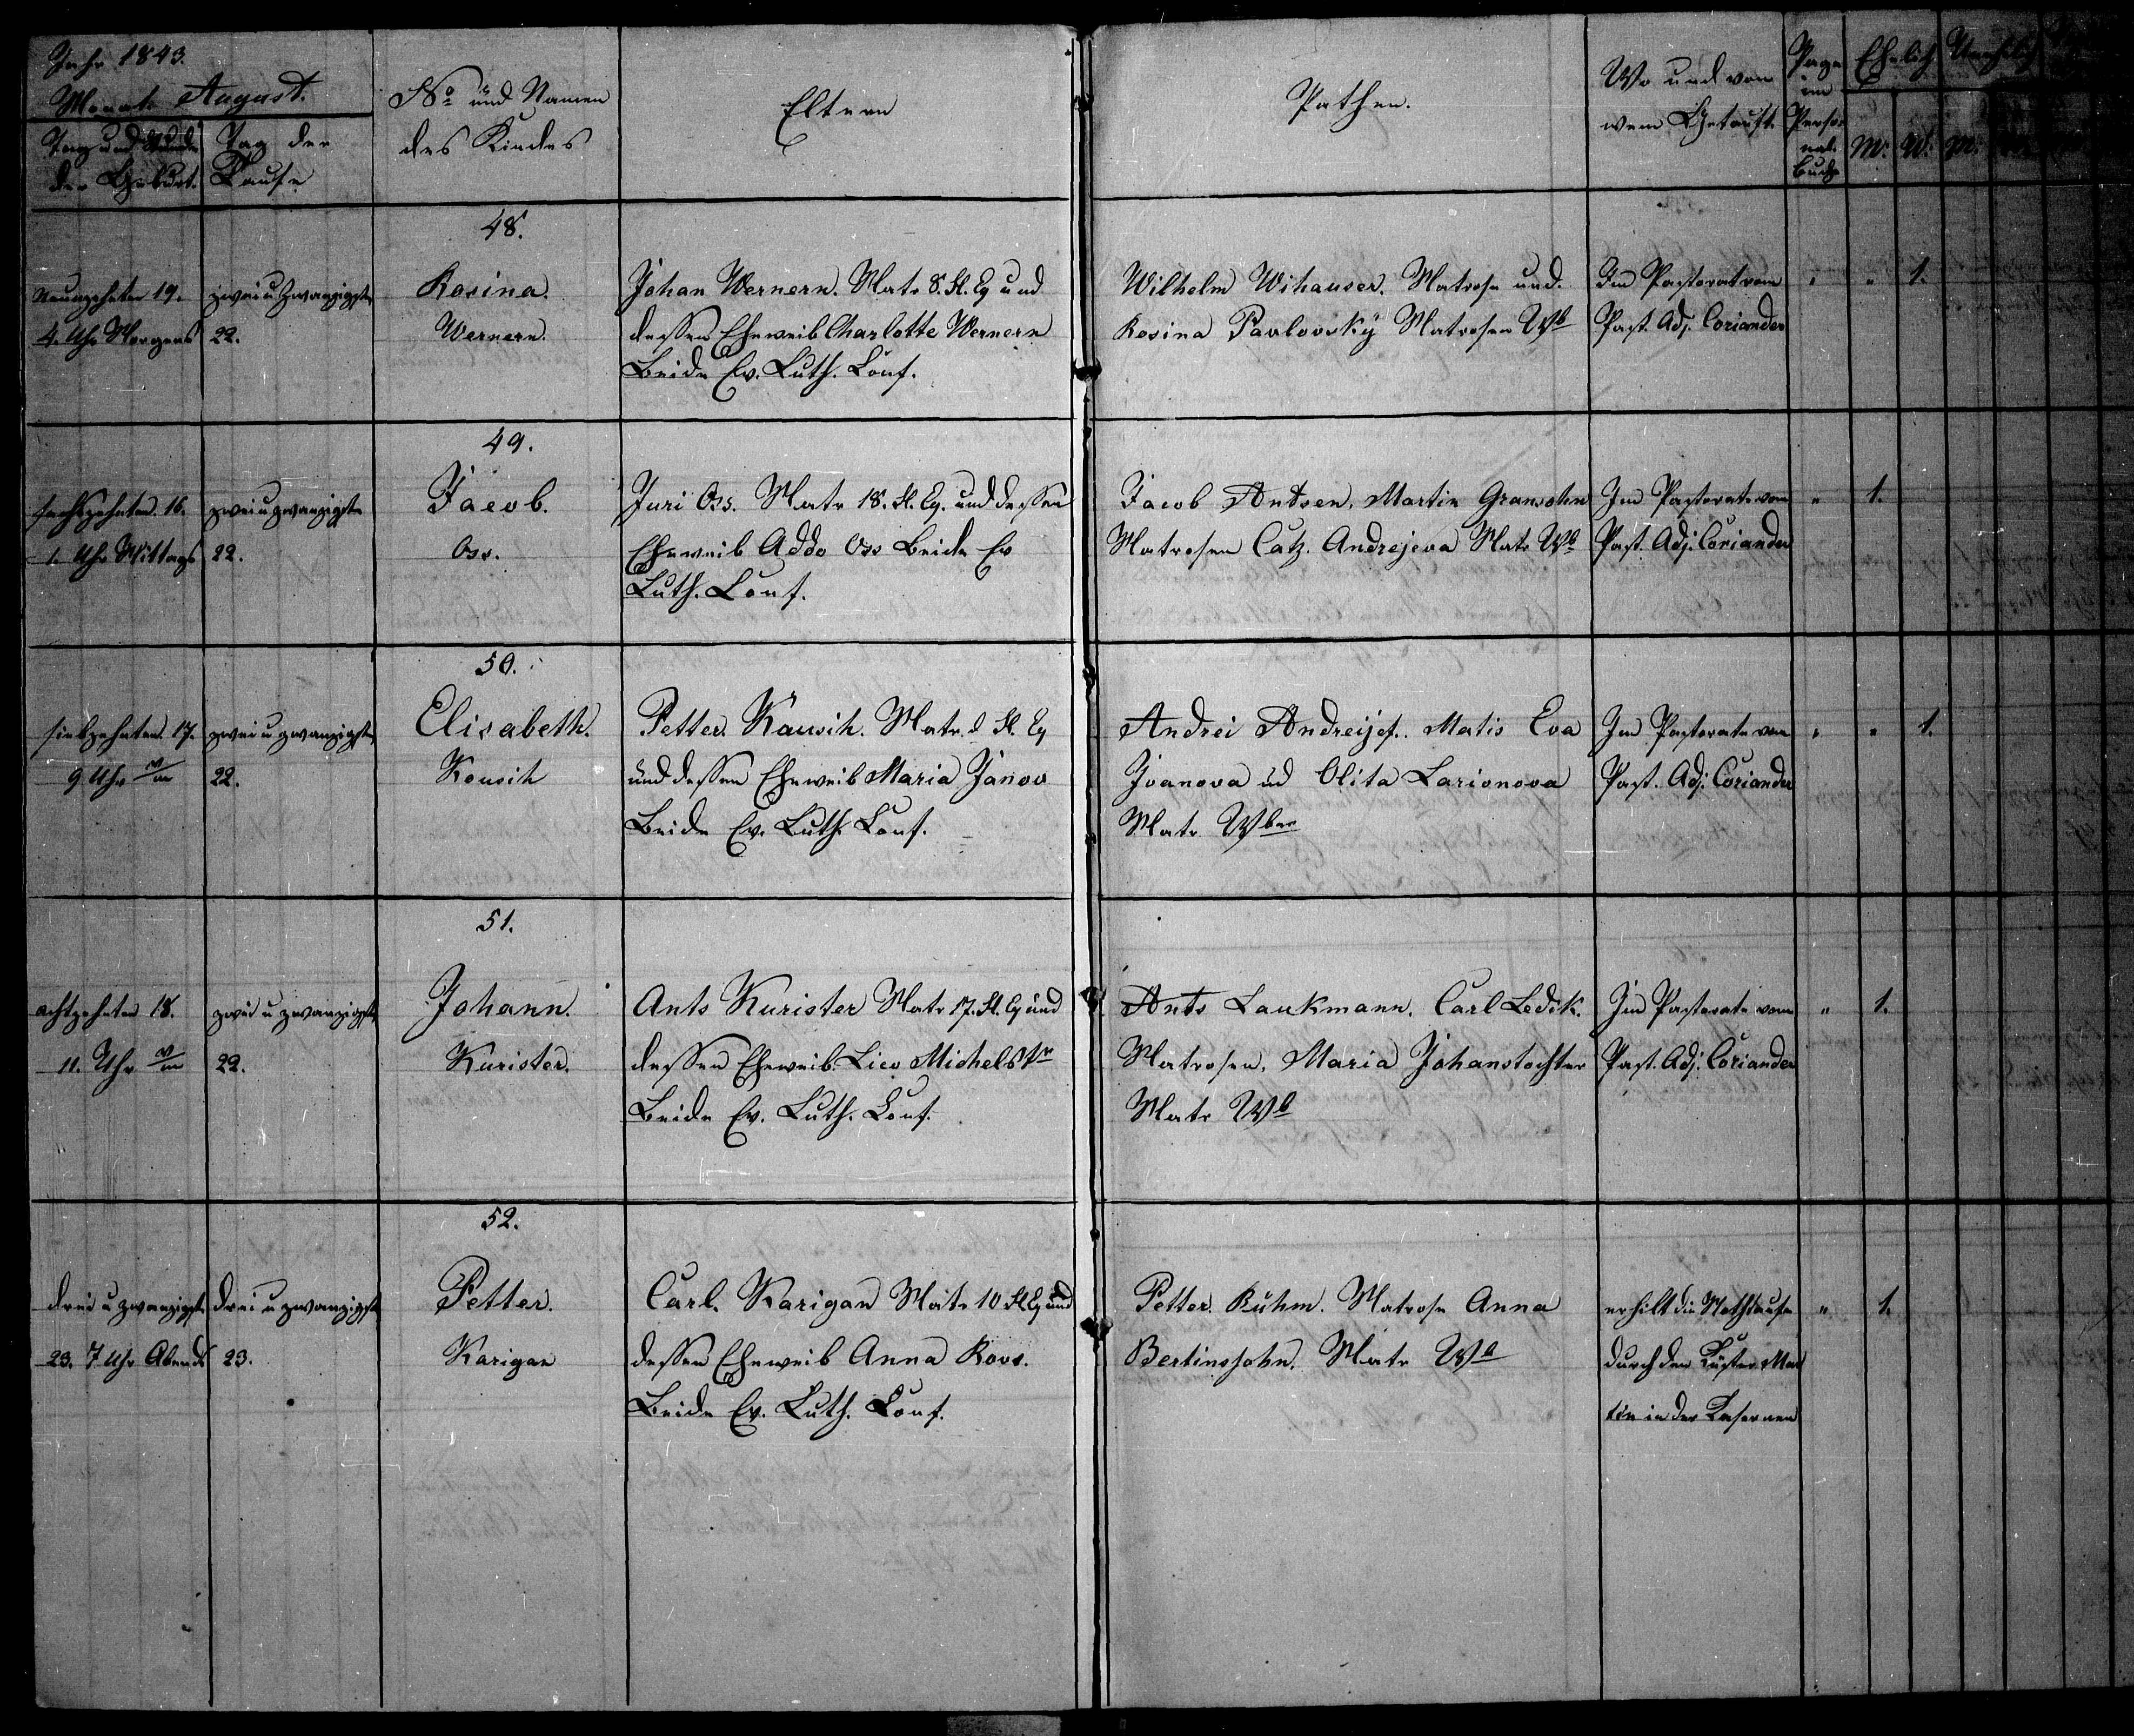 Jahr 1843.
Monat August.
Tag und Stunde der Geburt.
Tag der Taufe
No und Namen des Kindes
Eltern
Pathen.
Wo und von wem Getauft.
Page im Personal Buch
Ehelich
Unehelich
M: W: M:
48.
Neunzehnten 19.
4. Uhr Morgens
zwei u Zwanzigsten
22.
Rosina.
Wernern.
Johan Wernern. Matr 8. Fl. Eq und
dessen Eheweib Charlotte Wernern
Beide Ev. Luth. Conf.
Wilhelm Wihauser. Matrose und
Rosina Pavlovsky Matrosen Wb
Im Pastorat vom
Past. Adj. Coriander
" " 1.
49.
sechszehnten. 16.
1. Uhr Mittags
zwei u zwanzigste
22.
Jacob.
Oss.
Juri Oss. Matr 18. Fl. Eq. und dessen
Eheweib Addo Oss Beide Ev
Luth. Conf.
Jacob Antsen. Martin Gransohn
Matrosen Catz. Andrejeva Matr Wb
Im Pastorate vom
Past. Adj. Coriander
" 1.
50.
siebzehnten. 17.
9 Uhr v/m
zwei u zwanzigsten
22.
Elisabeth.
Kousih
Petter. Kausih. Matr. Fl. Eq
und dessen Eheweib Maria Janov
Beide Ev. Luth. Conf.
Andrei Andreijef. Matis Eva
Ivanova ud Olita Larionova
Matr Wber
Im Pastorate vom
Past. Adj. Coriander
" " 1.
51.
achtzehnten 18.
11. Uhr v/m
zwei u zwanzigsten
22.
Johann.
Kurister.
Ants Kurister Matr 17. Fl. Eq und
dessen Eheweib Liso Michelstr
Beide Ev. Luth. Conf.
Ants Laukmann. Carl Ledik.
Matrosen. Maria Johanstochter
Matr Wb
Im Pastorate vom
Past. Adj. Coriander
" 1.
52.
drei u zwanzigste
23. 7 Uhr Abends
drei u zwanzigste
23.
Petter.
Karigan
Carl. Karigan Matr 10 Fl Eq und
dessen Eheweib Anna Roos.
Beide Ev. Luth. Conf.
Petter. Kuhm. Matrose Anna
Bertinssohn. Matr Wb
erhilt die Nothtaufe
durch den Küster Mar
tin in der Kasernen
" 1.